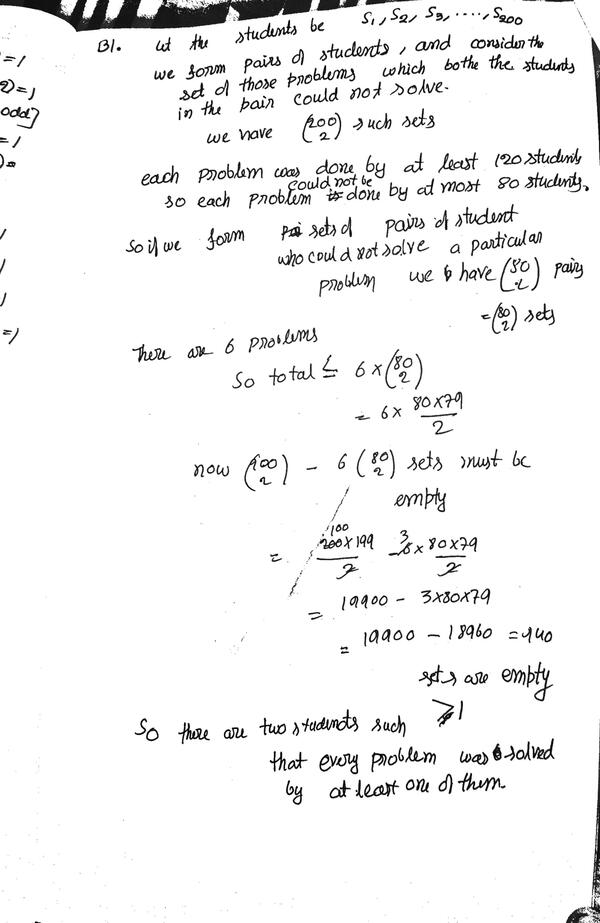 =1
2)=1
odd?
=1
)=
=)
B1. Let the students be S1, S2, S3, ...., S200
we form pairs of students, and consider the
set of those problems which bothe the students
in the pair could not solve.
we have (200 2) such sets
each problem was done by at least 120 students
so each problem could not be done by at most 80 students.
So if we form sets of pairs of student
who could not solve a particular
problem we have (80 2) pairs
=(80 2) sets
There are 6 problems
So total ≤ 6×(80 2)
= 6× 80×79/2
now (200 2) - 6 (80 2) sets must be
empty
= 100 200×199/2 - 3 6×80×79/2
= 19900 - 3×80×79
= 19900 - 18960 = 940
sets are empty
≥1
So there are two students such
that every problem was solved
by at least one of them